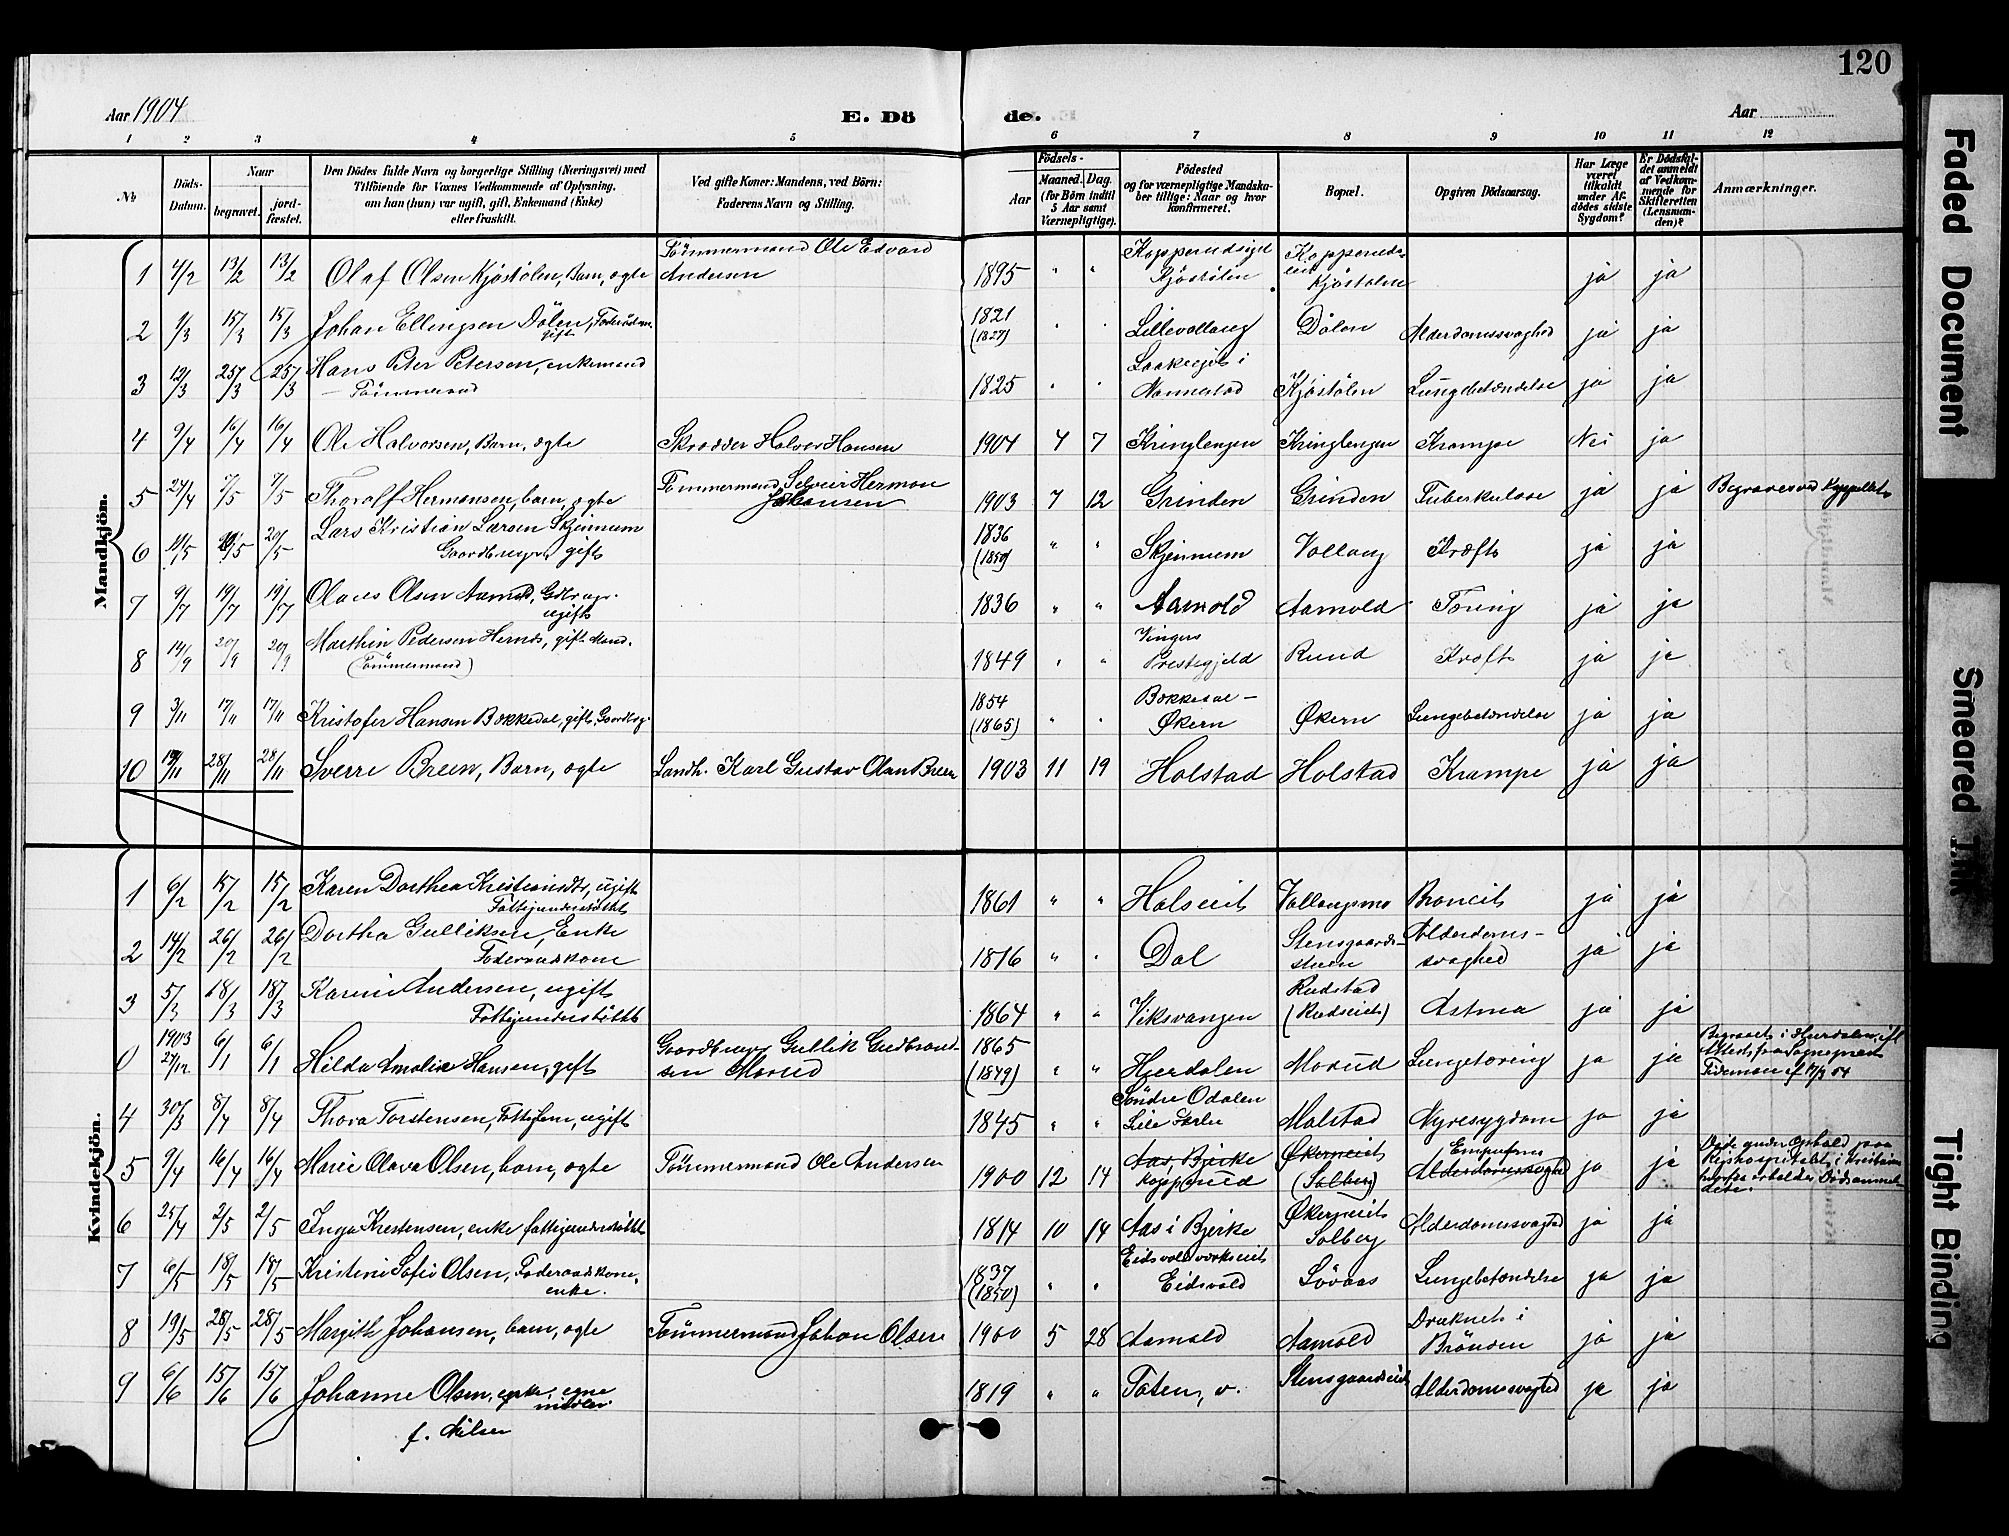 120
Aar 1904
E. Dö de.
Aar
1 2 3 4 5 6 7 8 9 10 11 12
No
Döds-Datum.
Naar
begravet.
jordfæstet.
Den Dödes fulde Navn og borgerlige Stilling (Næringsvei) med
Tilföiende for Voxnes Vedkommende af Oplysning,
om han (hun) var ugift, gift, Enkemand (Enke)
eller fraskilt.
Ved gifte Koner: Mandens, ved Börn:
Faderens Navn og Stilling.
Födsels-
Aar
Maaned. Dag.
(for Børn indtil
5 Aar samt
Værnepligtige).
Födested
og for værnepligtige Mandska-
ber tillige: Naar og hvor
konfirmeret.
Bopæl.
Opgiven Dödsaarsag.
Har Læge
været
tilkaldt
under Af-
dödes sidste
Sygdom?
Er Dödsfal-
det anmeldt
af Vedkom-
mende for
Skifteretten
(Lensman-
den)?
Anmærkninger.
Mandkjön.
1 4/2 13/2 13/2 Olaf Olsen Kjöstölen, Barn, ægte Tömmermand Ole Edvard Andersen 1895 " " Kjöstölen Kjöstölen ja ja
2 1/3 15/3 15/3 Johan Ellingsen Dölen, gift 1821 (1827) " " Lillevollaug Dölen Alderdomssvaghed ja ja
3 12/3 25/3 25/3 Hans Peter Petersen, enkemand – Tömmermand 1825 " " i Nannestad Kjöstölen Lungebetændelse ja ja
4 9/4 16/4 16/4 Ole Halvorsen, Barn, ægte Skrædder Halvor Hansen 1904 4 7 Kringlengen Kringlengen Krampe Nei ja
5 27/4 7/5 7/5 Thorolf Hermansen, barn, ægte Tömmermand Herman Johansen 1903 7 12 Grinden Grinden Tuberkulose ja ja Begravet ved Kapellet
6 11/5 20/5 Lars Kristian Larsen Skjennum Gaardbruger, gift 1836 (1859) " " Skjennum Vollaug Kræft ja ja
7 9/7 19/7 19/7 Olaves Olsen Aamold, Gdbrugr. ugift 1836 " " Aamold Aamold Tæring ja ja
8 14/9 20/9 20/9 Marthin Pedersen Hernes, gift Mand. (Tömmermand) 1849 " " Vingers Prestegjeld Rund Kræft ja ja
9 3/11 17/11 17/11 Kristofer Hansen Bækkedal, gift, Gaardbrg. 1854 (1865) " Bækkedal – Økern Økern Lungebetændelse ja ja
10 19/11 28/11 28/11 Sverre Breen, Barn, ægte Landh. Karl Gustav Olsen Breen 1903 11 19 Holstad Holstad Krampe ja ja
Kvindekjön.
1 6/2 15/2 15/2 Karen Dorthea Kristiansdtr, ugift Fattigunderstöttet 1861 " " Holseiet Vollaugsmo Broncit ja ja
2 14/2 26/2 26/2 Dortha Gulliksen, Enke Föderaadskone 1816 " " Dal Stensgaards- Alderdoms-svaghed ja ja
3 5/3 18/3 18/3 Karen Andersen, ugift Fattigunderstöttet 1864 " " Viksvangen Rudstad (Rudseiet) Astma ja ja
0 1903 27/12 6/1 6/1 Hilda Amalie Hansen, gift Gaardbruger Gullik Gudbrandsen Morud 1865 (1849) " " Hurdalen Morud Lungetæring ja ja Begravet i Hurdalen, ifl. Attest fra Sogneprest
4 30/3 8/4 8/4 Thora Torstensen, ugift 1845 " " Söndre Odalen Holstad Nyresygdom ja ja
5 9/4 16/4 16/4 Marie Olava Olsen, barn, ægte Tömmermand Ole Andersen 1900 12 14 Aas, Bjerke Koppérud Økerneiet (Solberg) Alderdomssvaghed ja ja Döde under Ophold paa Rigshospitalet i Kristiania
6 25/4 2/5 2/5 Inga Krestensen, enke fattigunderstöttet 1814 10 14 Aas i Bjerke Økerneiet Solberg Alderdomssvaghed ja ja
7 6/5 18/5 18/5 Kristine Sofie Olsen, Föderaadskone, enke. 1837 (1850) " " Eidsvoldverkseiet Eidsvold Lövaas Lungebetændelse ja ja
8 19/5 28/5 28/5 Margith Johansen, barn, ægte Tömmermand Johan Olsen 1900 5 28 Aamold Aamold Druknet i Brönden ja ja
9 6/6 15/6 15/6 Johanne Olsen, enke, egne midler. f. Nilsen 1819 " " Toten, v. Stensgaardseiet Alderdomssvaghed ja ja
Faded Document
Smeared Ink
Tight Binding